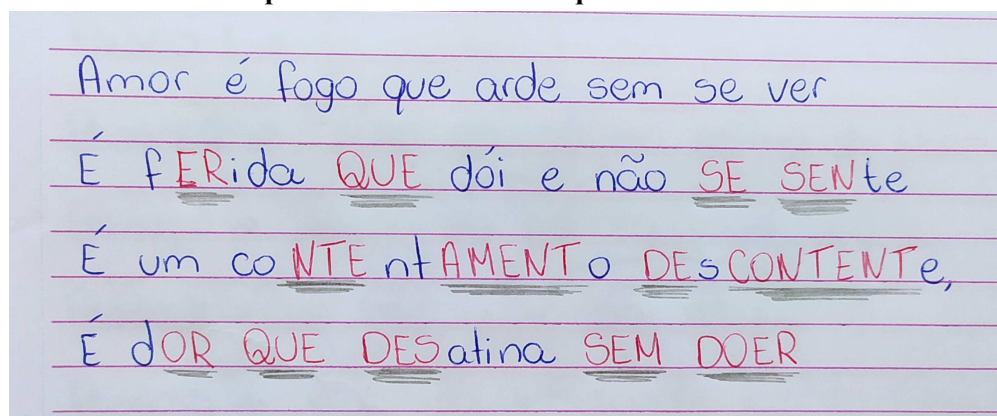 Amor é fogo que arde sem se ver
É fERida QUE dói e não SE SENte
É um coNTEntAMENTo DEsCONTENTe,
É dOR QUE DESatina SEM DOER